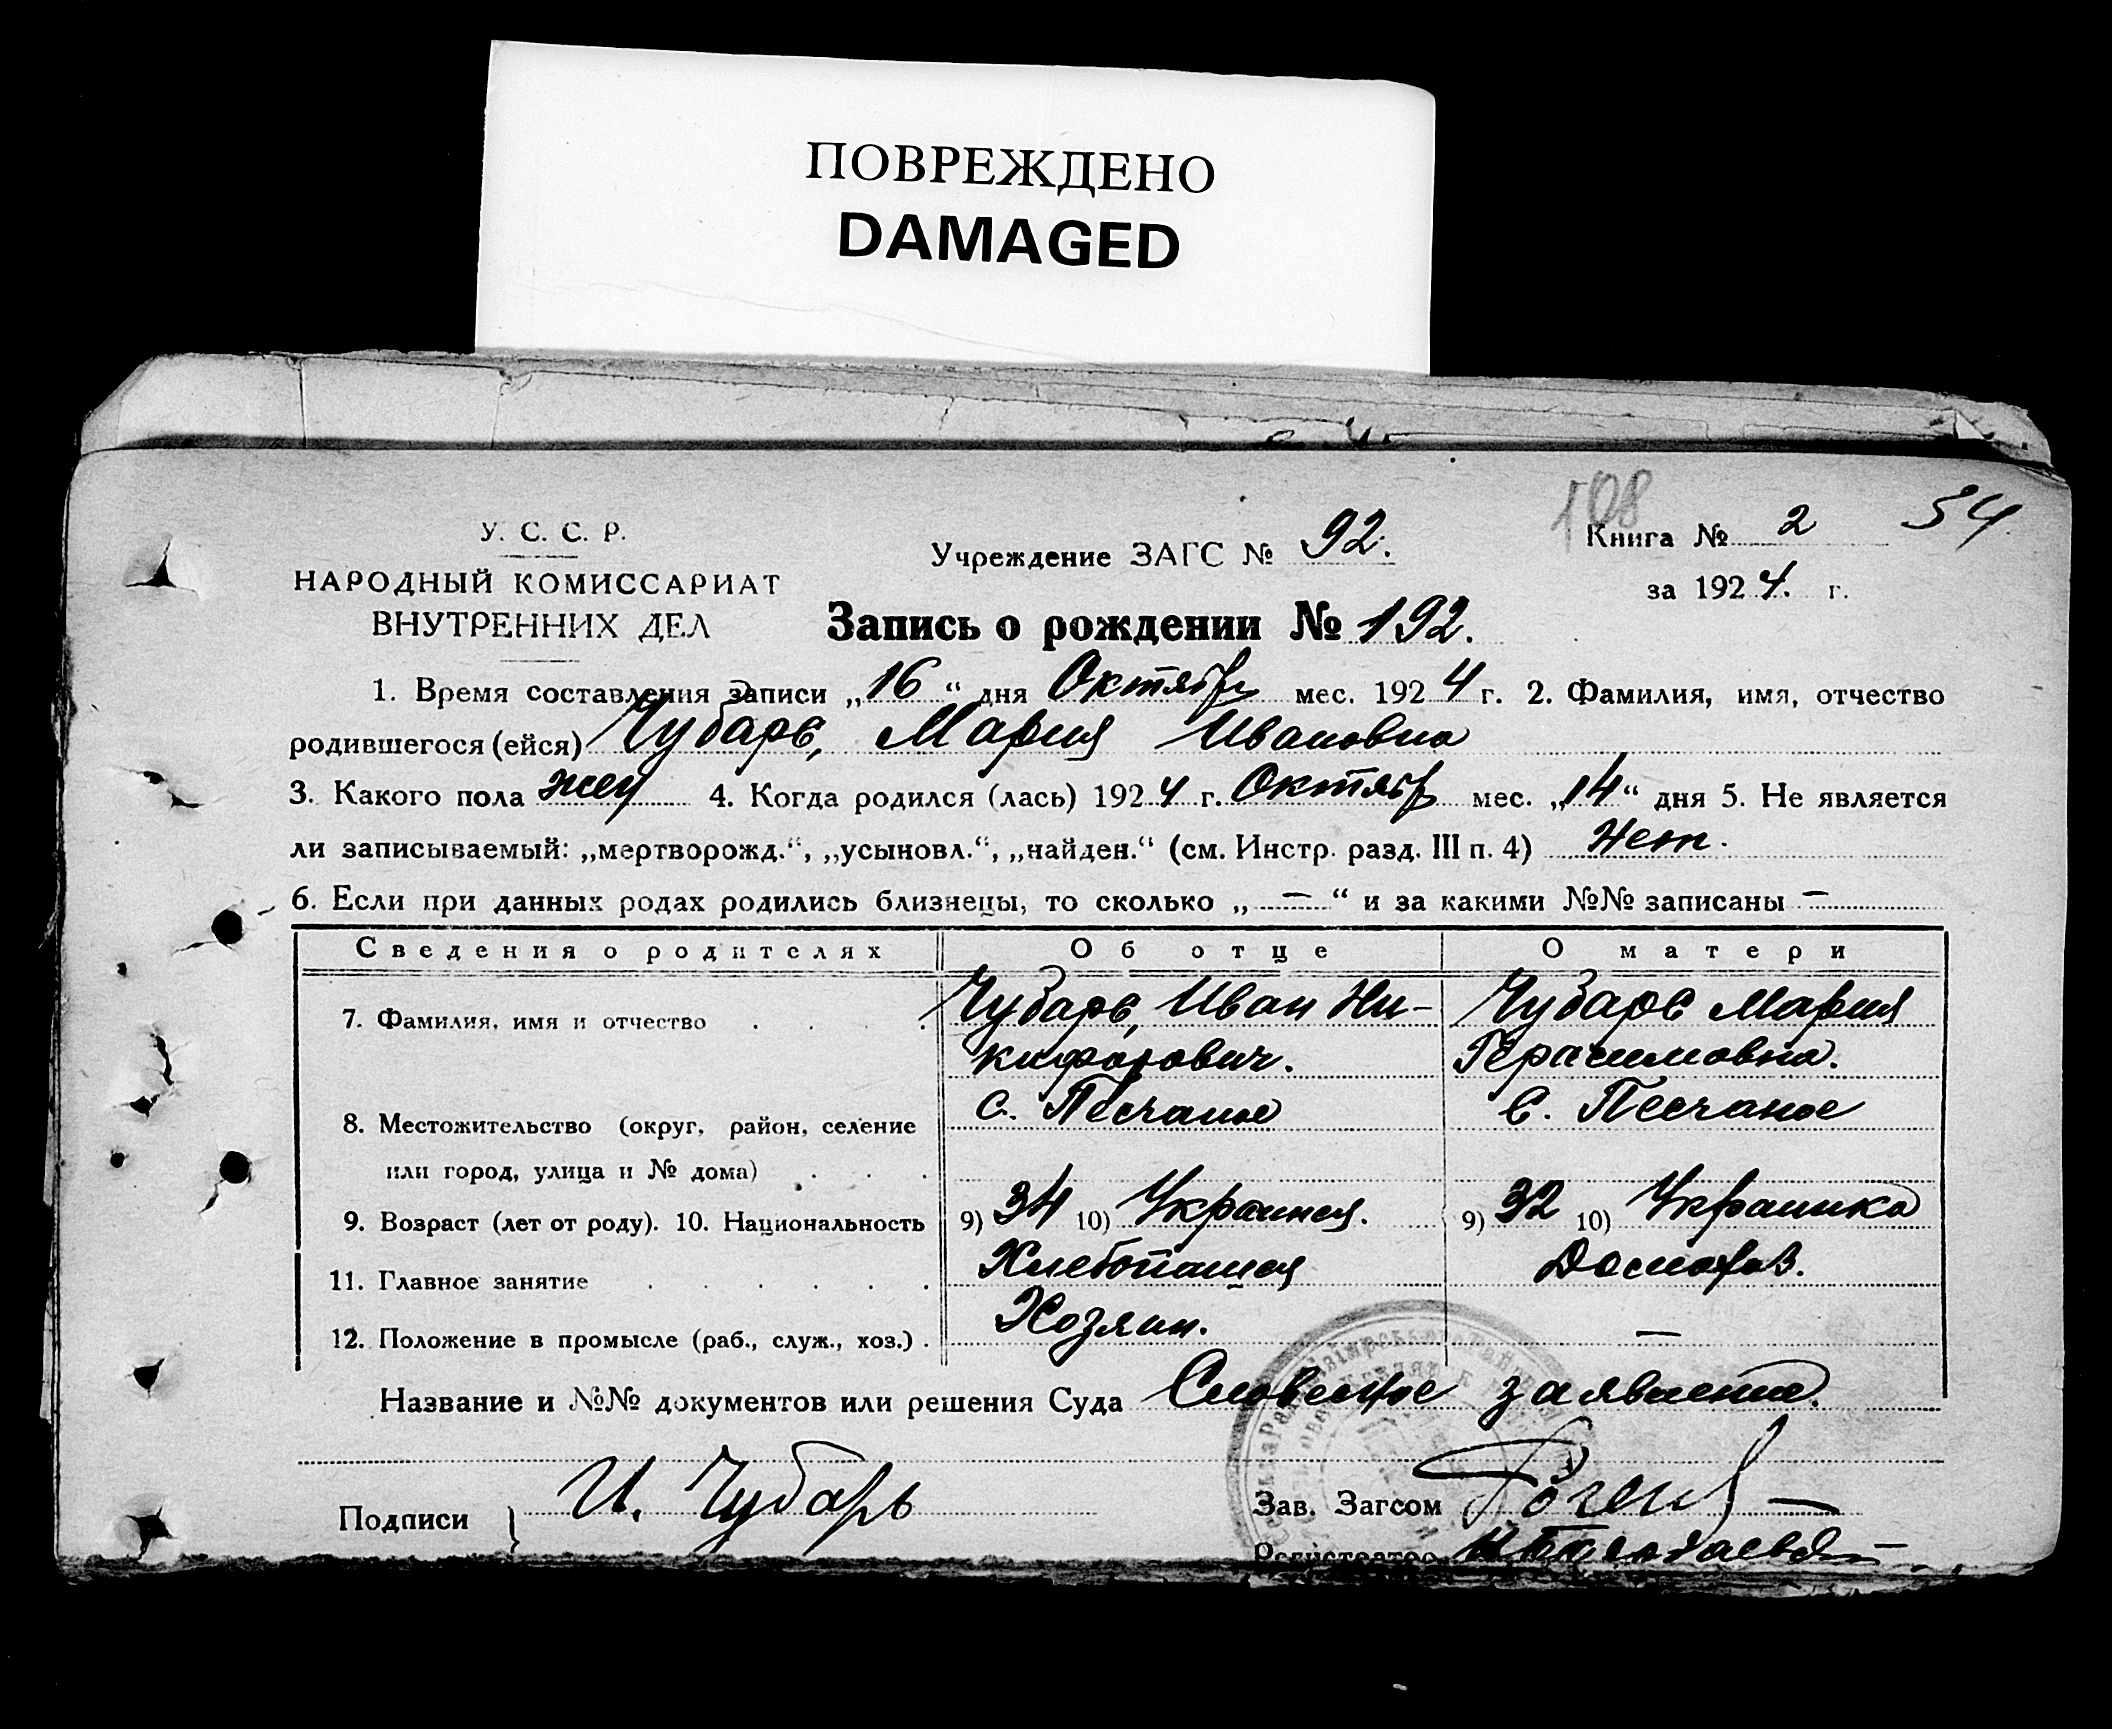 ПОВРЕЖДЕНО
DAMAGED
108
34
У. С. С. Р.
НАРОДНЫЙ КОМИССАРИАТ
ВНУТРЕННИХ ДЕЛ
Учреждение ЗАГС № 92.
Книга № 2
за 1924. г.
Запись о рождении № 192.
1. Время составления записи „16“ дня Октябр мес. 1924 г. 2. Фамилия, имя, отчество
родившегося (ейся) Чубарь, Мария Ивановна
3. Какого пола жен 4. Когда родился (лась) 1924 г. Октябр мес. „14“ дня 5. Не является
ли записываемый: „мертворожд.“, „усыновл.“, „найден.“ (см. Инстр. разд. III п. 4) Нет.
6. Если при данных родах родились близнецы, то сколько „ — “ и за какими №№ записаны —
Сведения о родителях Об отце О матери
7. Фамилия, имя и отчество Чубарь, Иван Ни- Чубарь Мария
кифорович. Герасимовна.
8. Местожительство (округ, район, селение с. Песчаное с. Песчаное
или город, улица и № дома)
9. Возраст (лет от роду). 10. Национальность 9) 34 10) Украинец. 9) 32 10) Украинка
11. Главное занятие Хлебопашец Домохоз.
12. Положение в промысле (раб., служ., хоз.) Хозяин. —
Название и №№ документов или решения Суда Словесное заявление.
Подписи } И. Чубарь Зав. Загсом
Регистратор